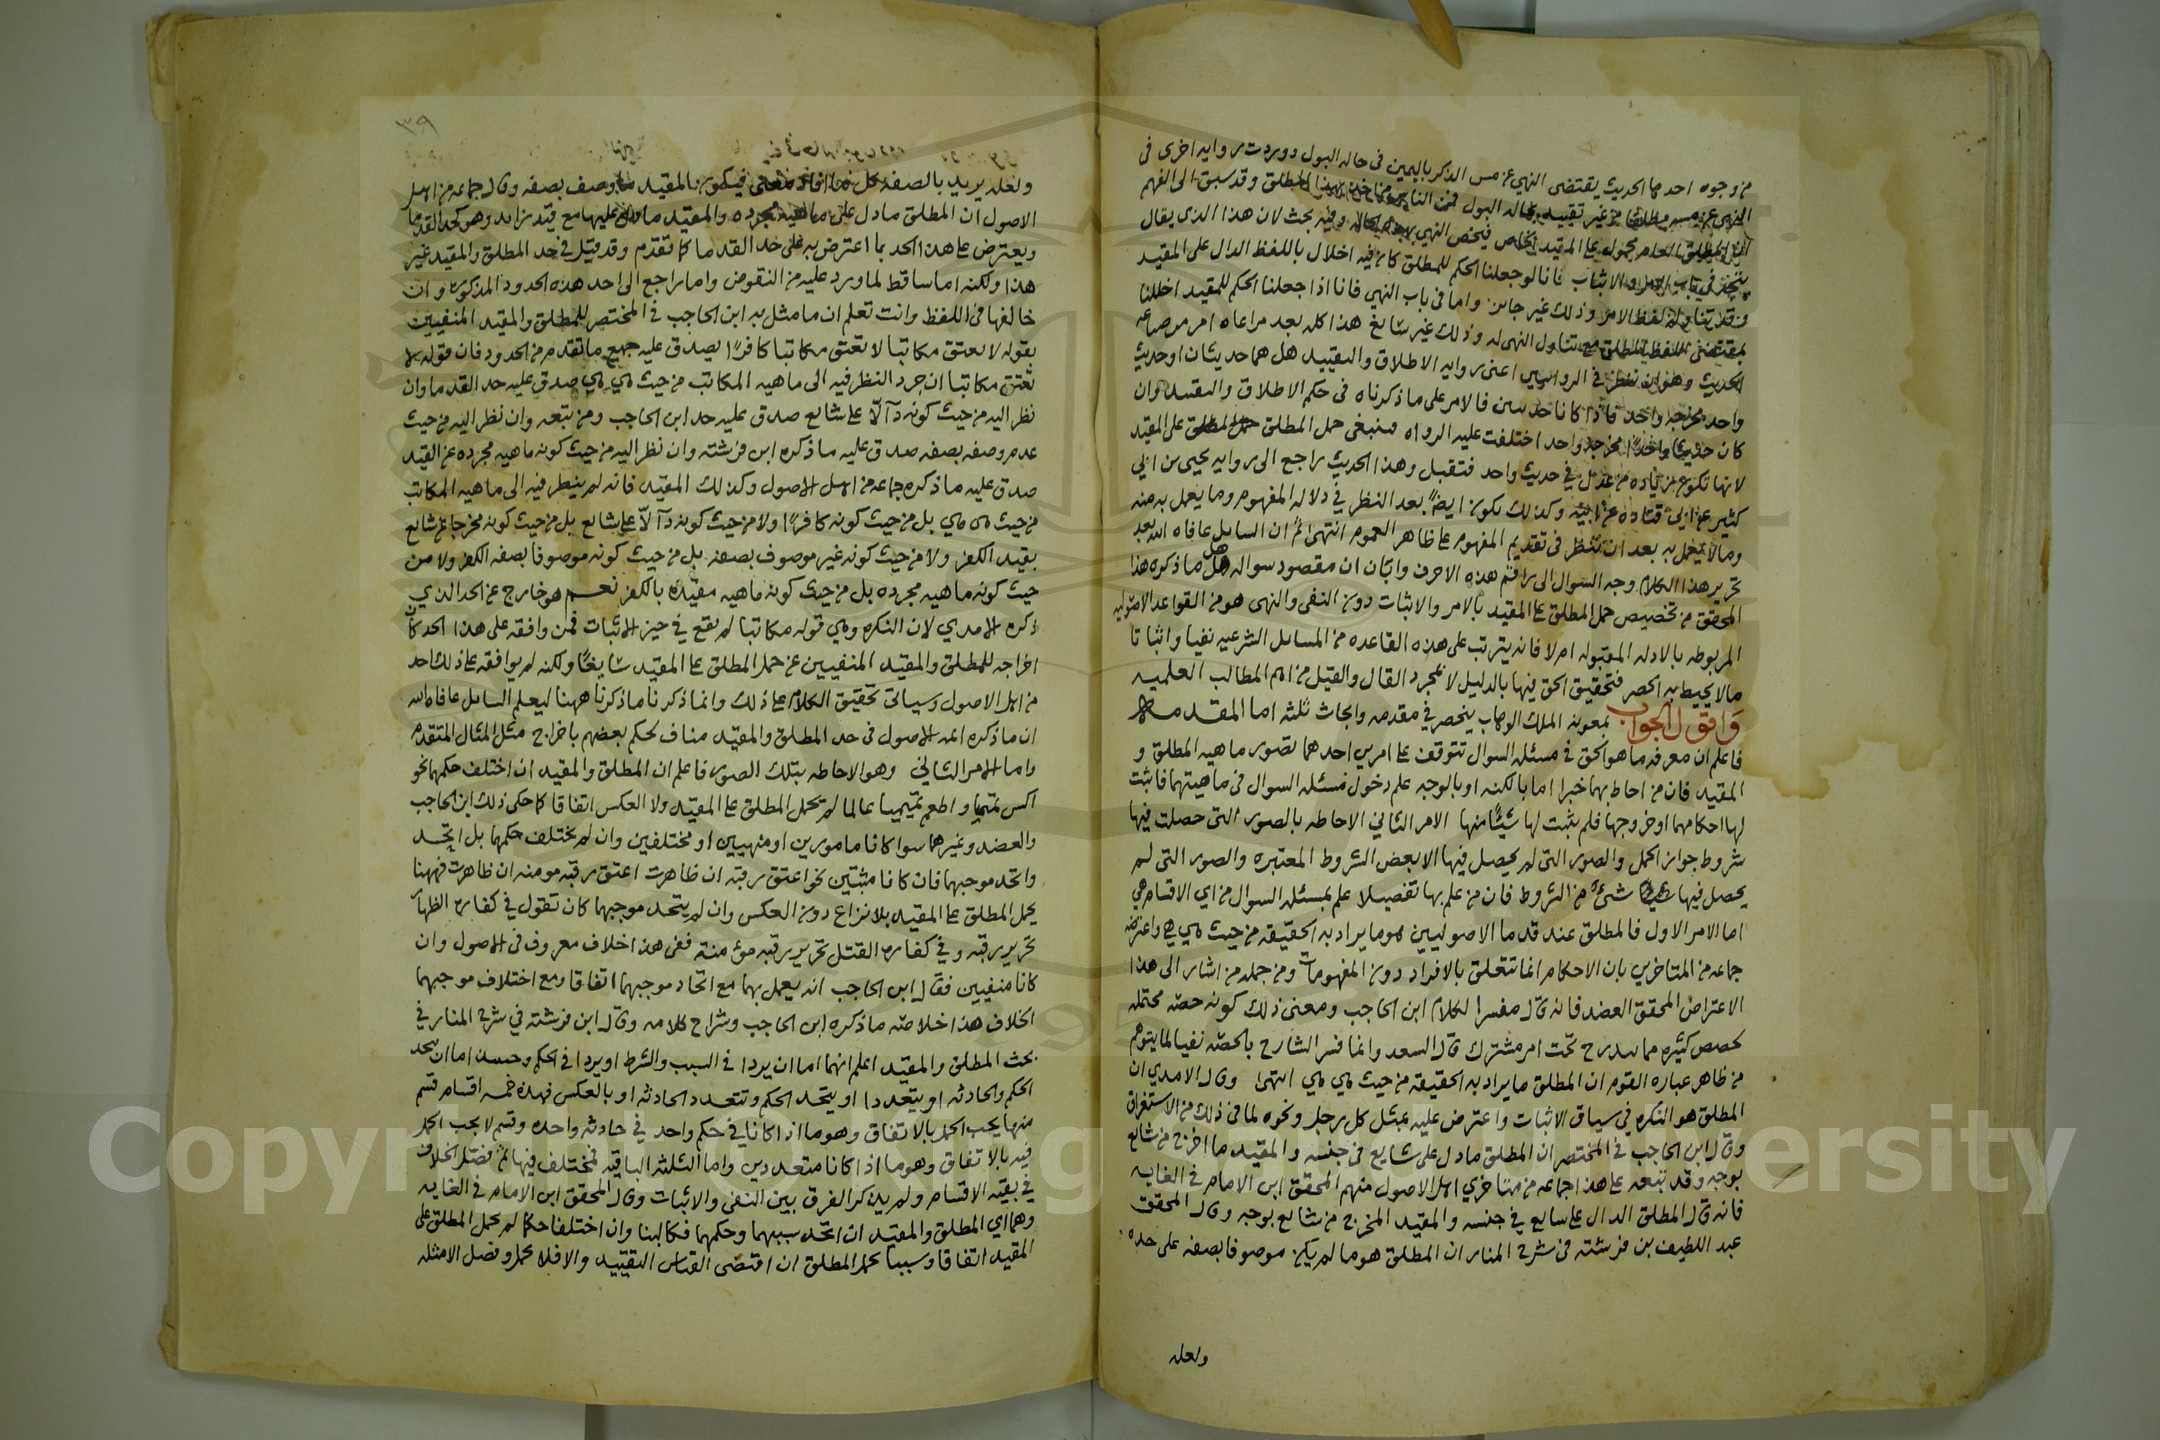 من وجوه احدها الحديث يقتضى النهى عن مس الذكر باليمين فى حاله البول ووردت روايه اخرى فى
النهى عن مسه مطلقا من غير تقييد بحاله البول فمن الناس من اخذ بهذا المطلق وقد سبق الى الفهم
ان المطلق العام محمول على المقيد الخاص فيخص النهى بهذه الحاله وفيه بحث لان هذا الذى يقال
يتجه فى باب الامر والاثبات فانا لو جعلنا الحكم للمطلق كان فيه اخلال باللفظ الدال على المقيد
وقد تناوله لفظ الامر وذلك غير جائز واما فى باب النهى فانا اذا جعلنا الحكم للمقيد اخللنا
بمقتضى اللفظ المطلق مع تناول النهى له وذلك غير سائغ هذا كله بعد مراعاه امر من صناعه
الحديث وهو ان ننظر فى الروايتين اعنى روايه الاطلاق والتقييد هل هما حديثان او حديث
واحد مخرجه واحد فاذا كانا حديثين فالامر على ما ذكرناه فى حكم الاطلاق والتقييد وان
كان حديثا واحدا مخرجه واحد اختلفت عليه الرواه فينبغى حمل المطلق على المقيد
لانها تكون زياده من عدل فى حديث واحد فتقبل وهذا الحديث راجع الى روايه يحيى بن ابى
كثير عن ابى قتاده عن ابيه وكذلك يكون ايضا بعد النظر فى دلاله المفهوم وما يعمل به منه
وما لا يعمل به بعد ان تنظر فى تقديم المفهوم على ظاهر العموم انتهى ثم ان السايل عافاه الله بعد
تحرير هذا الكلام وجه السوال الى راقم هذه الاحرف وابان ان مقصود سواله هل ما ذكره هذا
المحقق من تخصيص حمل المطلق على المقيد بالامر والاثبات دون النفى والنهى هو من القواعد الاصوليه
المربوطه بالادله المقبوله ام لا فانه يترتب على هذه القاعده من المسايل الشرعيه نفيا واثباتا
ما لا يحيط به الحصر فتحقيق الحق فيها بالدليل لا بمجرد القال والقيل من اهم المطالب العلميه
واقول الجواب بمعونه الملك الوهاب ينحصر فى مقدمه وابحاث ثلثه اما المقدمه
فاعلم ان معرفه ما هو الحق فى مسئله السوال تتوقف على امرين احدهما تصور ماهيه المطلق و
المقيد فان من احاط بهما خبرا اما بالكنه او بالوجه علم دخول مسئله السوال فى ماهيتهما فاثبت
لها احكامهما او خروجها فلم يثبت لها شيئا منها الامر الثانى الاحاطه بالصور التى حصلت فيها
شروط جواز الحمل والصور التى لم يحصل فيها الا بعض الشروط المعتبره والصور التى لم
يحصل فيها شئ من الشروط فان من علم بها تفصيلا علم بمسئله السوال من اى الاقسام هى
اما الامر الاول فالمطلق عند قدما الاصوليين هو ما يراد به الحقيقه من حيث هى هى واعترضه
جماعه من المتاخرين بان الاحكام انما تتعلق بالافراد دون المفهومات ومن جمله من اشار الى هذا
الاعتراض المحقق العضد فانه قال مفسرا لكلام ابن الحاجب ومعنى ذلك كونه حصه محتمله
لحصص كثيره مما يندرج تحت امر مشترك قال السعد وانما فسر الشارح بالحصه نفيا لما يتوهم
من ظاهر عباره القوم ان المطلق ما يراد به الحقيقه من حيث هى هى انتهى وقال الامدى ان
المطلق هو النكره فى سياق الاثبات واعترض عليه بمثل كل رجل ونحوه لما فى ذلك من الاستغراق
وقال ابن الحاجب فى المختصر ان المطلق ما دل على شايع فى جنسه والمقيد ما اخرج من شايع
بوجه وقد تبعه على هذا جماعه من متاخرى اهل الاصول منهم المحقق ابن الامام فى الغايه
فانه قال المطلق الدال على شايع فى جنسه والمقيد المخرج من شايع بوجه وقال المحقق
عبد اللطيف بن فرشته فى شرح المنار ان المطلق هو ما لم يكن موصوفا بصفه على حده
ولعله
٩٣
ولعله يريد بالصفه كل ما افاد معنى فيكون المقيد ما وصف بصفه وقال جماعه من اهل
الاصول ان المطلق ما دل على ماهيه مجرده والمقيد ما دل عليها مع قيد زايد وهو كحد القدما
ويعترض على هذا الحد بما اعترض به على حد القدما كما تقدم وقد قيل فى حد المطلق والمقيد غير
هذا ولكنه اما ساقط لما ورد عليه من النقوض واما راجع الى احد هذه الحدود المذكوره وان
خالفها فى اللفظ وانت تعلم ان ما مثل به ابن الحاجب فى المختصر للمطلق والمقيد المنفيين
بقوله لا تعتق مكاتبا لا تعتق مكاتبا كافرا يصدق عليه جميع ما تقدم من الحدود فان قوله لا
تعتق مكاتبا ان جرد النظر فيه الى ماهيه المكاتب من حيث هى هى صدق عليه حد القدما وان
نظر اليه من حيث كونه دالا على شايع صدق عليه حد ابن الحاجب ومن تبعه وان نظر اليه من حيث
عدم وصفه بصفه صدق عليه ما ذكره ابن فرشته وان نظر اليه من حيث كونه ماهيه مجرده عن القيد
صدق عليه ما ذكره جماعه من اهل الاصول وكذلك المقيد فانه لم ينظر فيه الى ماهيه المكاتب
من حيث هى هى بل من حيث كونه كافرا ولا من حيث كونه دالا على شايع بل من حيث كونه مخرجا عن شايع
بقيد الكفر ولا من حيث كونه غير موصوف بصفه بل من حيث كونه موصوفا بصفه الكفر ولا من
حيث كونه ماهيه مجرده بل من حيث كونه ماهيه مقيده بالكفر نعم هو خارج عن الحد الذى
ذكره الامدى لان النكره وهى قوله مكاتبا لم تقع فى حيز الاثبات فمن وافقه على هذا الحد كان
اخراجه للمطلق والمقيد المنفيين عن حمل المطلق على المقيد سايغا ولكنه لم يوافقه على ذلك احد
من اهل الاصول وسياتى تحقيق الكلام على ذلك وانما ذكرنا ما ذكرنا ههنا ليعلم السايل عافاه الله
ان ما ذكره ائمه الاصول فى حد المطلق والمقيد مناف لحكم بعضهم باخراج مثل المثال المتقدم
واما الامر الثانى وهو الاحاطه بتلك الصور فاعلم ان المطلق والمقيد ان اختلف حكمهما نحو
اكس تميما واطعم تميميا عالما لم يحمل المطلق على المقيد ولا العكس اتفاقا كما حكى ذلك ابن الحاجب
والعضد وغيرهما سوا كانا مامورين او منهيين او مختلفين وان لم يختلف حكمهما بل اتحد
واتحد موجبهما فان كانا مثبتين نحو اعتق رقبه ان ظاهرت اعتق رقبه مومنه ان ظاهرت فههنا
يحمل المطلق على المقيد بلا نزاع دون العكس وان لم يتحد موجبهما كان تقول فى كفاره الظهار
تحرير رقبه وفى كفاره القتل تحرير رقبه مؤمنة ففى هذا خلاف معروف فى الاصول وان
كانا منفيين فقال ابن الحاجب انه يعمل بهما مع اتحاد موجبهما اتفاقا ومع اختلاف موجبهما
الخلاف هذا خلاصه ما ذكره ابن الحاجب وشراح كلامه وقال ابن فرشته فى شرح المنار فى
بحث المطلق والمقيد اعلم انهما اما ان يردا فى السبب والشرط او يردا فى الحكم وحينئذ اما ان يتحد
الحكم والحادثه او يتعددا او يتحد الحكم وتتعدد الحادثه او بالعكس فهذه خمسه اقسام قسم
منها يجب الحمل بالاتفاق وهو ما اذا كانا فى حكم واحد فى حادثه واحده وقسم لا يجب الحمل
فيه بالاتفاق وهو ما اذا كانا متعددين واما الثلثه الباقيه فمختلف فيها ثم فصل الخلاف
فى بقيه الاقسام ولم يذكر الفرق بين النفى والاثبات وقال المحقق ابن الامام فى الغايه
وهما اى المطلق والمقيد ان اتحد سببهما وحكمهما فكالبنا وان اختلفا حكما لم يحمل المطلق على
المقيد اتفاقا وسببا يحمل المطلق ان اقتضى القياس التقييد والا فلا يحمل وفصل الامثله
Copyright © King Saud University